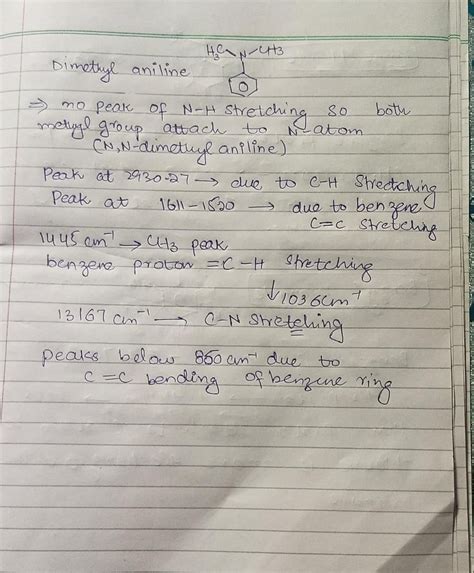 H₃C N-CH3
Dimethyl aniline
⇒ no peak of N-H stretching so both
methyl group attach to N-atom
(N,N-dimethyl aniline)
Peak at 2930.27 → due to C-H Stredtching
Peak at 1611-1520 → due to benzene
C=C stretching
1445 cm⁻¹ → CH3 peak
benzene proton =C-H stretching
↓1036cm⁻¹
13167 cm⁻¹ → C-N Stretching
peaks below 860 cm⁻¹ due to
C=C bending of benzene ring